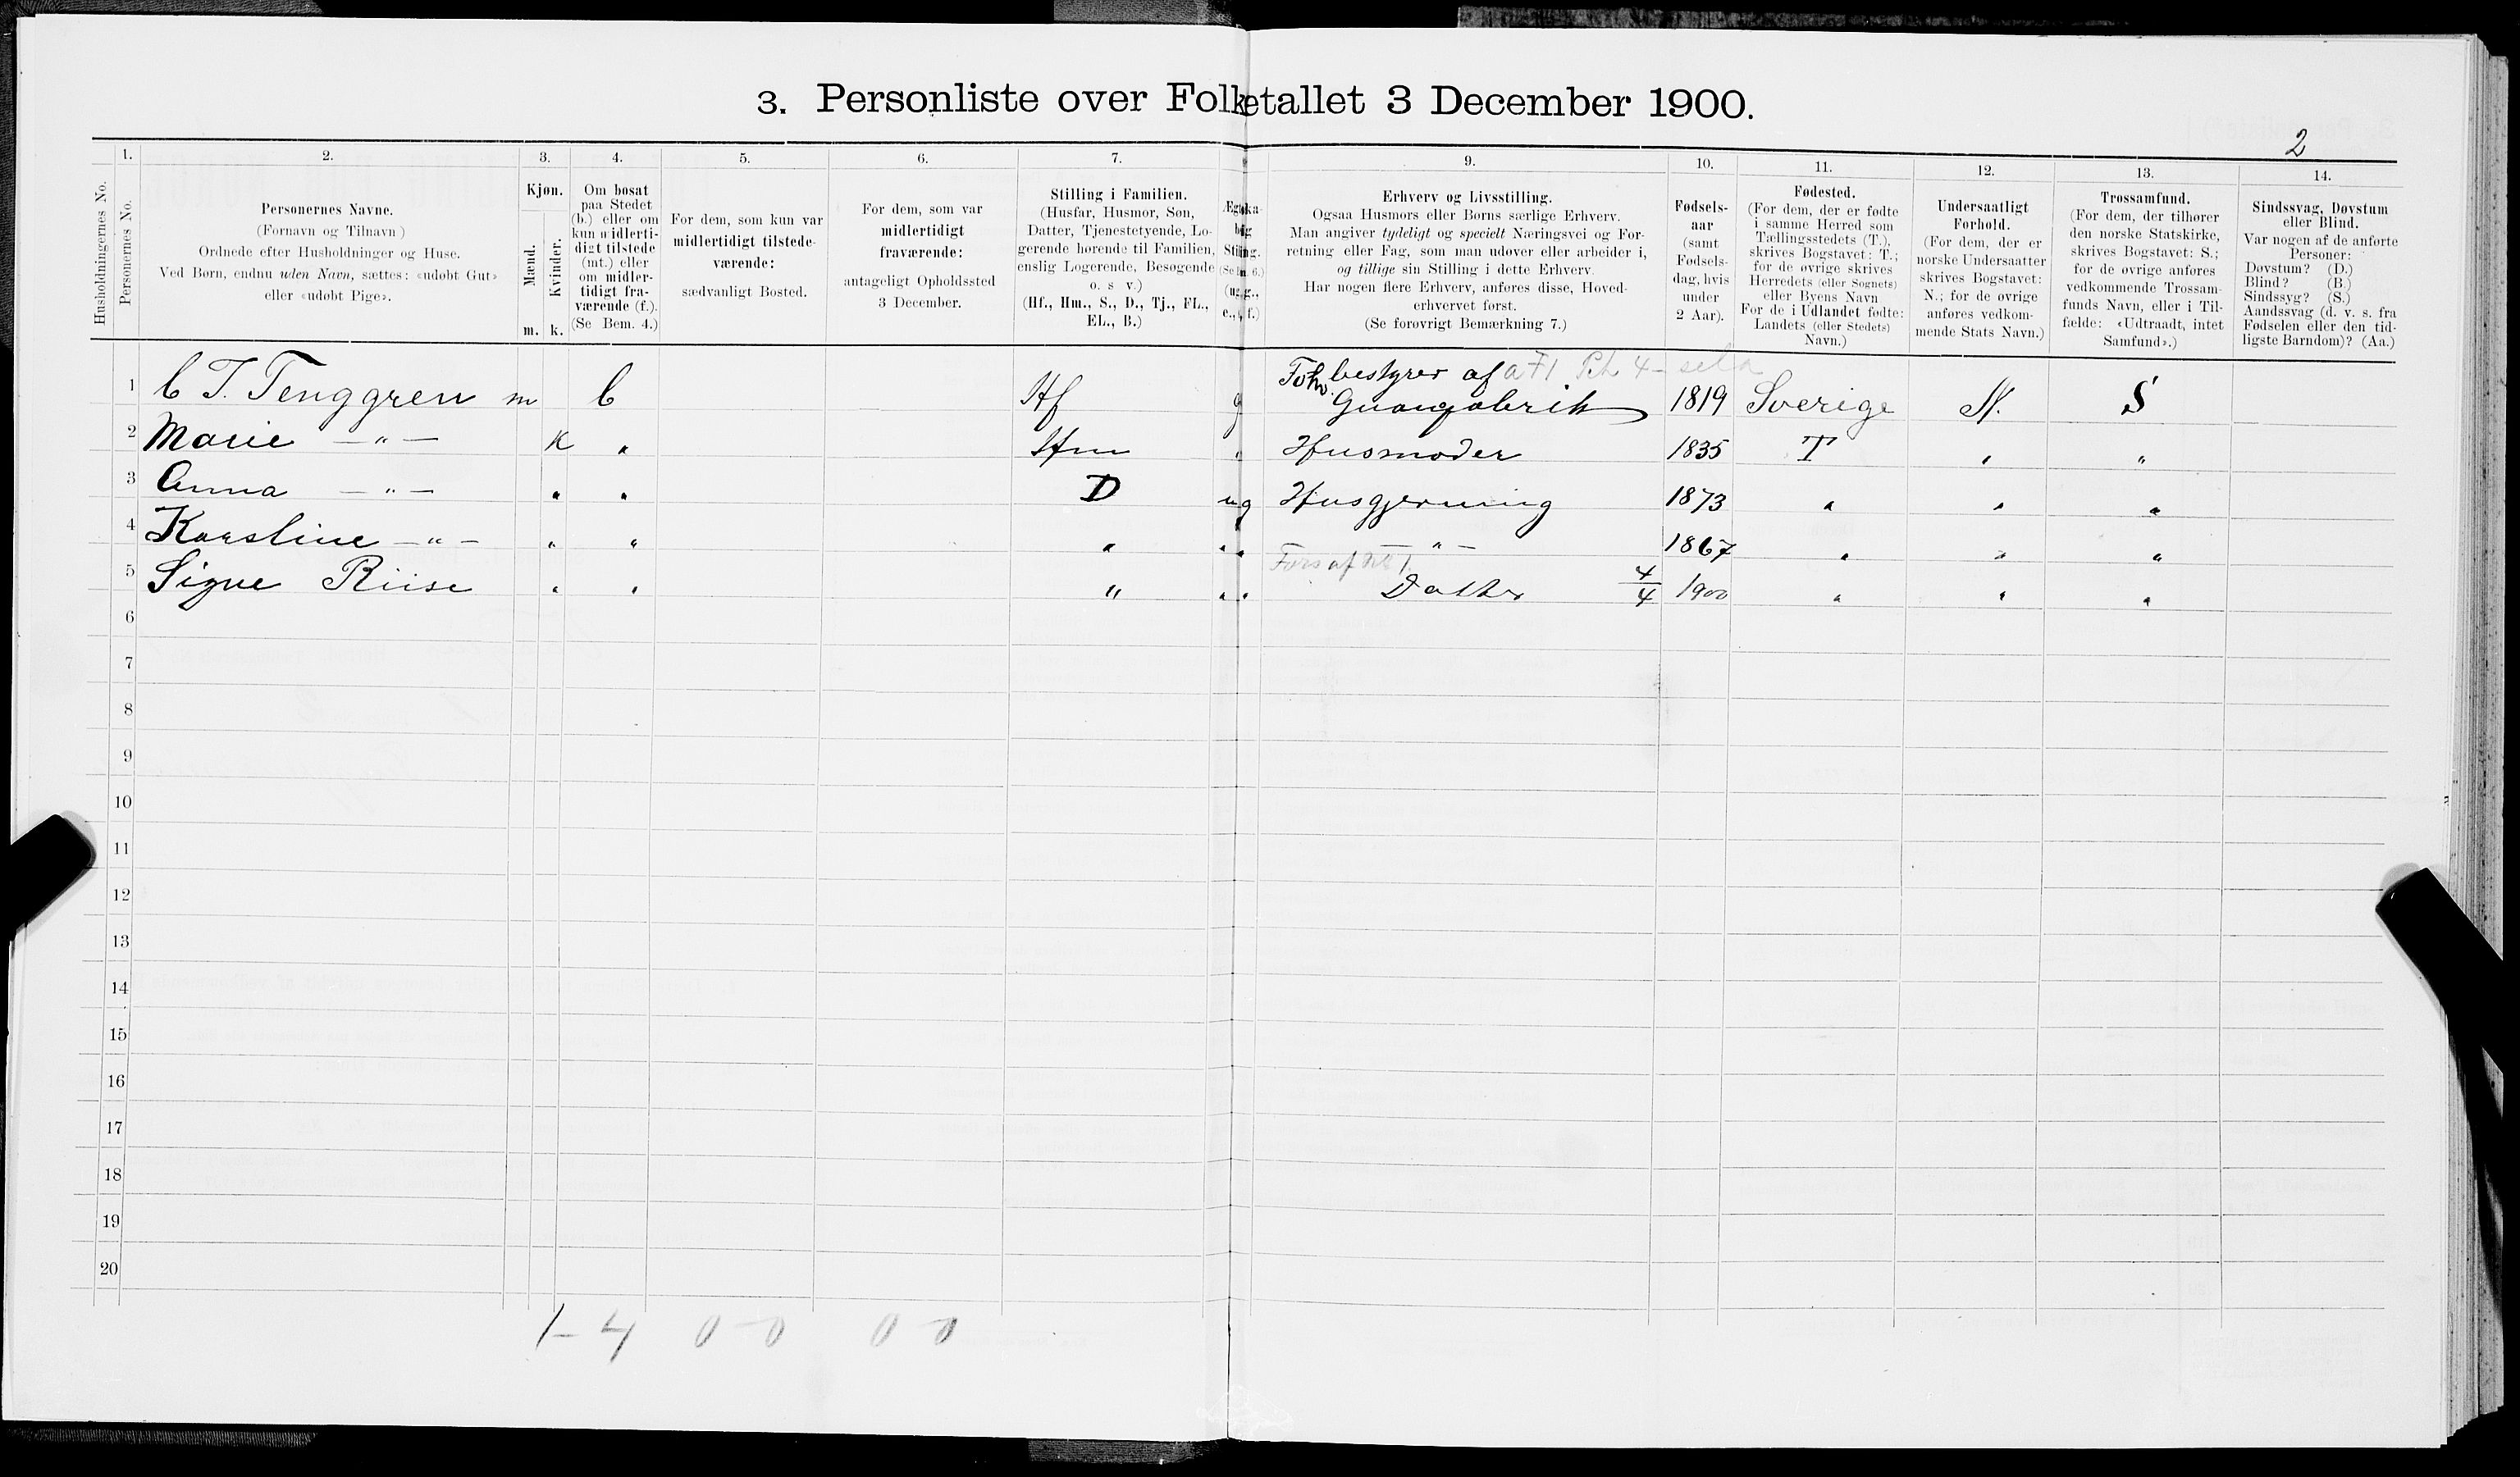 3. Personliste over Folketallet 3 December 1900.
2
Husholdningernes No.
1.
Personernes No.
2.
Personernes Navne.
(Fornavn og Tilnavn)
Ordnede efter Husholdninger og Huse.
Ved Børn, endnu uden Navn, sættes: «udøbt Gut»
eller «udøbt Pige».
3.
Kjøn.
Mænd.
Kvinder.
m. k.
4.
Om bosat
paa Stedet
(b.) eller om
kun midlerti-
digt tilstede
(mt.) eller
om midler-
tidigt fra-
værende (f.).
(Se Bem. 4.)
5.
For dem, som kun var
midlertidigt tilstede-
værende:
sædvanligt Bosted.
6.
For dem, som var
midlertidigt
fraværende:
antageligt Opholdssted
3 December.
7.
Stilling i Familien.
(Husfar, Husmor, Søn,
Datter, Tjenestetyende, Lo-
gerende hørende til Familien,
enslig Logerende, Besøgende
o. s v.)
(Hf., Hm., S., D., Tj., FL.,
EL., B.)
9.
Erhverv og Livsstilling.
Ogsaa Husmors eller Børns særlige Erhverv.
Man angiver tydeligt og specielt Næringsvei og For-
retning eller Fag, som man udøver eller arbeider i,
og tillige sin Stilling i dette Erhverv.
Har nogen flere Erhverv, anføres disse, Hoved-
erhvervet først.
(Se forøvrigt Bemærkning 7.)
10.
Fødsels-
aar
(samt
Fødsels-
dag, hvis
under
2 Aar).
11.
Fødested.
(For dem, der er fødte
i samme Herred som
Tællingsstedets (T.),
skrives Bogstavet: T.;
for de øvrige skrives
Herredets (eller Sognets)
eller Byens Navn
For de i Udlandet fødte:
Landets (eller Stedets)
Navn.)
12.
Undersaatligt
Forhold.
(For dem, der er
norske Undersaatter
skrives Bogstavet:
N.; for de øvrige
anføres vedkom-
mende Stats Navn.)
13.
Trossamfund.
(For dem, der tilhører
den norske Statskirke,
skrives Bogstavet: S.;
for de øvrige anføres
vedkommende Trossam-
funds Navn, eller i Til-
fælde: «Udtraadt, intet
Samfund».)
14.
Sindssvag, Døvstum
eller Blind.
Var nogen af de anførte
Personer:
Døvstum? (D.)
Blind? (B.)
Sindssyg? (S.)
Aandssvag (d. v. s. fra
Fødselen eller den tid-
ligste Barndom)? (Aa.)
1 C T. Tenggren m b Hf g bestyrer af
Guanofabrik 1819 Sverige N. S
2 Marie — " — K " Hm " Husmoder 1835 T " "
3 Anna — " — " " D ug Husgjerning 1873 " " "
4 Karsline — " — " " " " " — " — 1867 " " "
5 Signe Riise " " " " " Datter 4/4 1900 " " "
6
7
8
9
10
11
12
13
14
15
16
17
18
19
20
1 – 4 0 – 0 0 0